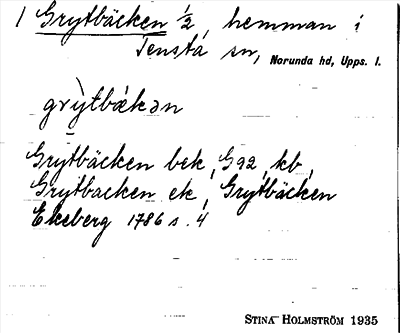 1 Grytbäcken 1/2, hemman i
Tensta sn, Norunda hd, Upps. l.
grỳtbæ̀kən
Grytbäcken bek, G92, kb,
Grytbacken ek, Grytbäcken
Ekeberg 1786 s. 4
STINA HOLMSTRÖM 1935